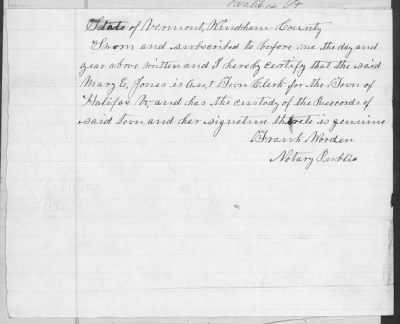 State of Vermont, Windham County
Sworn and subscribed to before me the day and
year above written and I hereby certify that the said
Mary E, Jones is Ass,t Town Clerk for the Town of
Halifax Vt, and has the custody of the Records of
said town, and her signature thereto is genuine
Frank Worden
Notary Public